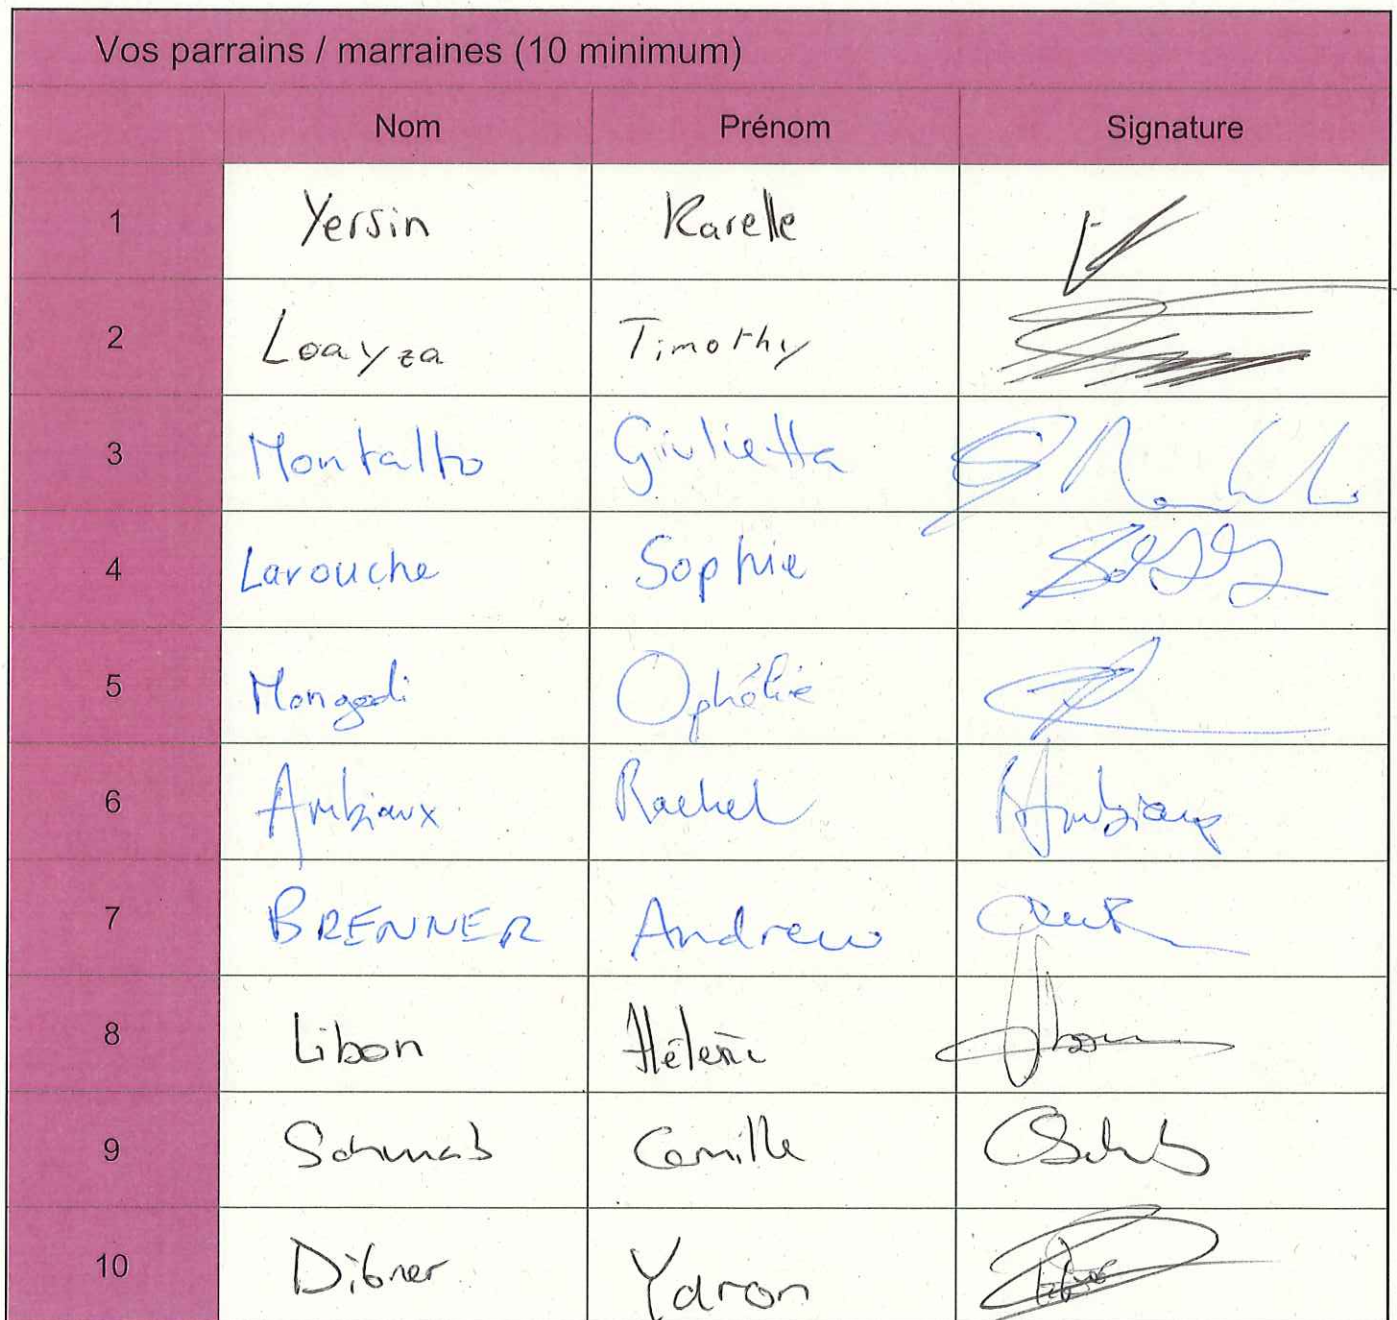 Vos parrains / marraines (10 minimum)
Nom Prénom Signature
1 Yersin Karelle
2 Loayza Timothy
3 Montalto Giulietta
4 Larouche Sophie
5 Mongodi Ophélie
6 Ambiaux Rachel
7 BRENNER Andrew
8 Libon Hélène
9 Schwab Camille
10 Dibner Yaron